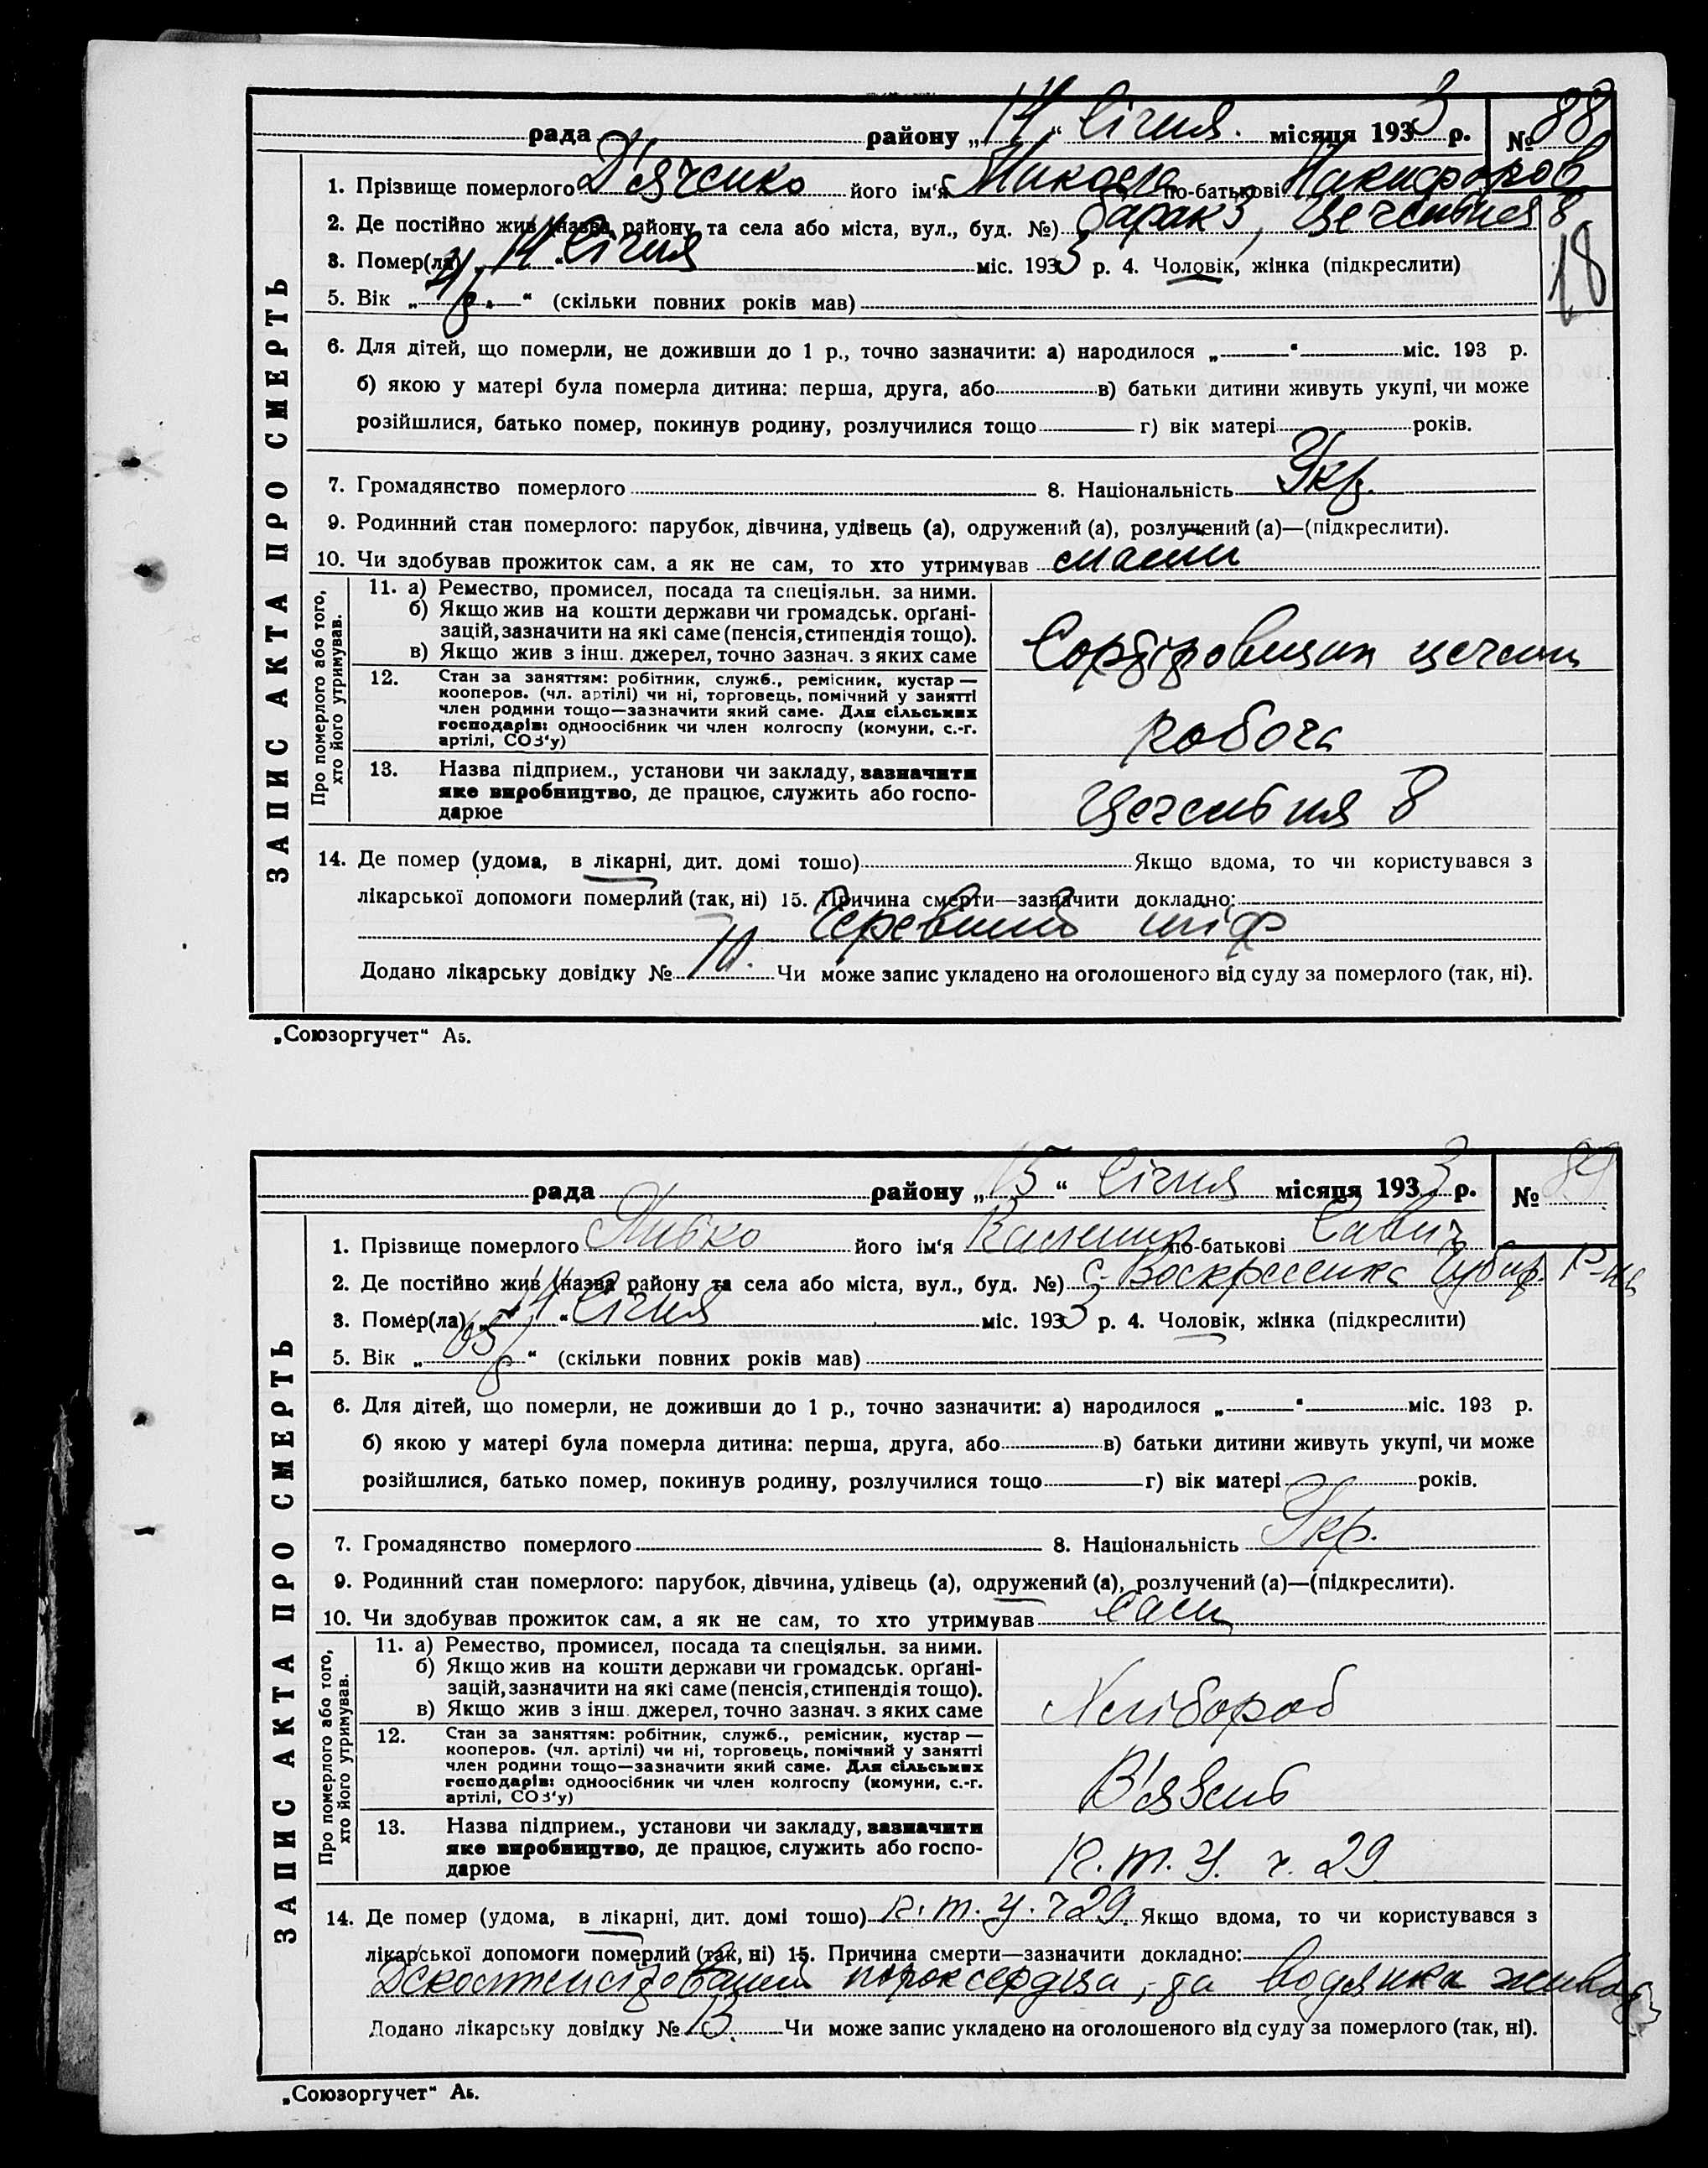 рада району „14“ Січня. місяця 1933 р. № 88
1. Прізвище померлого Дяченко його ім'я Микола по-батькові Никифоров
2. Де постійно жив (назва району та села або міста, вул., буд. №) барак 3, Цегельня 8
18
3. Помер(ла) „14“ Січня міс. 1933 р. 4. Чоловік, жінка (підкреслити)
5. Вік „ р.“ (скільки повних років мав)
6. Для дітей, що померли, не доживши до 1 р., точно зазначити: а) народилося „ “ міс. 193 р.
б) якою у матері була померла дитина: перша, друга, або в) батьки дитини живуть укупі, чи може
розійшлися, батько помер, покинув родину, розлучилися тощо г) вік матері років.
7. Громадянство померлого 8. Національність Укр.
9. Родинний стан померлого: парубок, дівчина, удівець (а), одружений (а), розлучений (а)—(підкреслити).
10. Чи здобував прожиток сам, а як не сам, то хто утримував
ЗАПИС АКТА ПРО СМЕРТЬ
Про померлого або того, хто його утримував.
11. а) Ремество, промисел, посада та спеціяльн. за ними.
б) Якщо жив на кошти держави чи громадськ. орґані-
зацій, зазначити на які саме (пенсія, стипендія тощо).
в) Якщо жив з інш. джерел, точно зазнач. з яких саме
Сортіровщик цегели
12. Стан за заняттям: робітник, служб., ремісник, кустар—
кооперов. (чл. артілі) чи ні, торговець, помічний у занятті
член родини тощо—зазначити який саме. Для сільських
господарів: одноосібник чи член колгоспу (комуни, с.-г.
артілі, СОЗ'у)
робоча
13. Назва підприєм., установи чи закладу, зазначити
яке виробництво, де працює, служить або госпо-
дарює
Цегельня 8
14. Де помер (удома, в лікарні, дит. домі тошо) Якщо вдома, то чи користувався з
лікарської допомоги померлий (так, ні) 15. Причина смерти—зазначити докладно:
Черевний тіф
Додано лікарську довідку № 10. Чи може запис укладено на оголошеного від суду за померлого (так, ні).
„Союзоргучет“ А5.
рада району „15“ Січня місяця 1933 р. № 89
1. Прізвище померлого його ім'я по-батькові Савич
2. Де постійно жив (назва району та села або міста, вул., буд. №) с. Воскресенка Чубар. р-на
3. Помер(ла) „14“ Січня міс. 1933 р. 4. Чоловік, жінка (підкреслити)
5. Вік „65 р“ (скільки повних років мав)
6. Для дітей, що померли, не доживши до 1 р., точно зазначити: а) народилося „ “ міс. 193 р.
б) якою у матері була померла дитина: перша, друга, або в) батьки дитини живуть укупі, чи може
розійшлися, батько помер, покинув родину, розлучилися тощо г) вік матері років.
7. Громадянство померлого 8. Національність Укр.
9. Родинний стан померлого: парубок, дівчина, удівець (а), одружений (а), розлучений (а)—(підкреслити).
10. Чи здобував прожиток сам, а як не сам, то хто утримував сам
ЗАПИС АКТА ПРО СМЕРТЬ
Про померлого або того, хто його утримував.
11. а) Ремество, промисел, посада та спеціяльн. за ними.
б) Якщо жив на кошти держави чи громадськ. орґані-
зацій, зазначити на які саме (пенсія, стипендія тощо).
в) Якщо жив з інш. джерел, точно зазнач. з яких саме
Хлібороб
12. Стан за заняттям: робітник, служб., ремісник, кустар—
кооперов. (чл. артілі) чи ні, торговець, помічний у занятті
член родини тощо—зазначити який саме. Для сільських
господарів: одноосібник чи член колгоспу (комуни, с.-г.
артілі, СОЗ'у)
В'язень
13. Назва підприєм., установи чи закладу, зазначити
яке виробництво, де працює, служить або госпо-
дарює
К.т.у. ч. 29
14. Де помер (удома, в лікарні, дит. домі тошо) К.т.у. ч 29 Якщо вдома, то чи користувався з
лікарської допомоги померлий (так, ні) 15. Причина смерти—зазначити докладно:
Декомпенсірований порок сердца, та водянка живота
Додано лікарську довідку № 13. Чи може запис укладено на оголошеного від суду за померлого (так, ні).
„Союзоргучет“ А5.